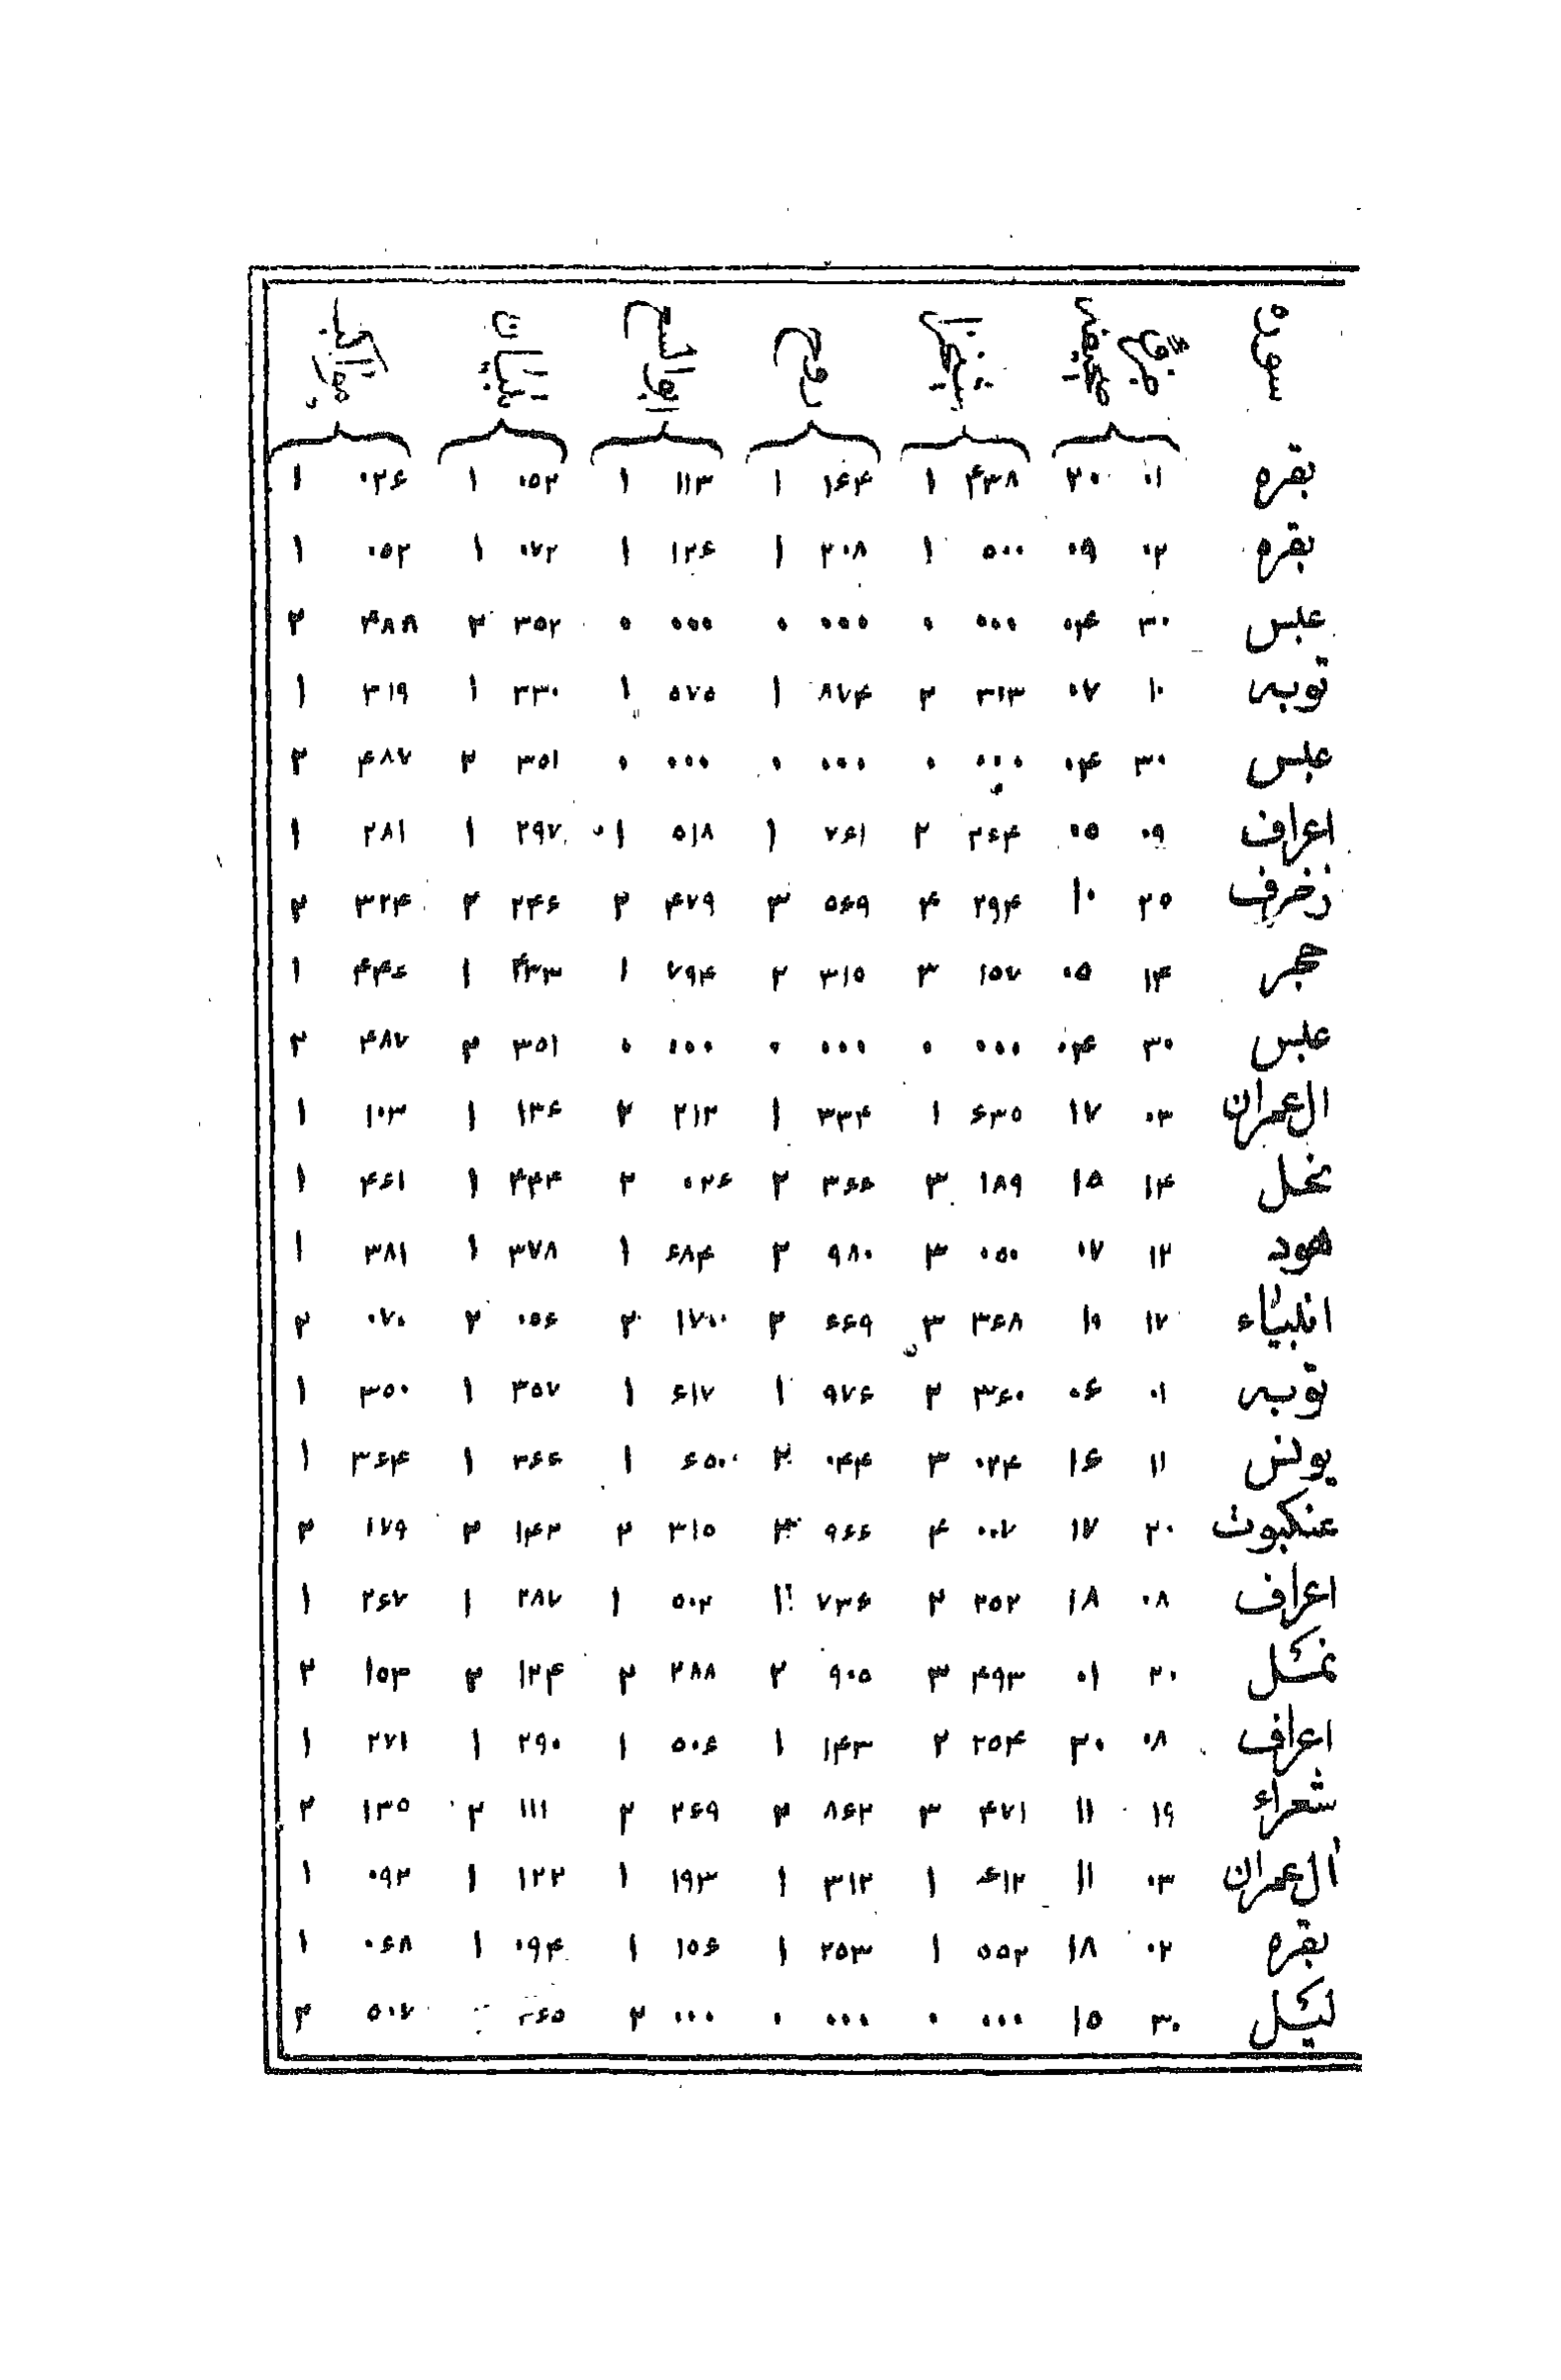 سوره
بقره ۰۱ ۲۰ ۴۳۸ ۱ ۱۶۴ ۱ ۱۱۳ ۱ ۰۵۲ ۱ ۰۲۶ ۱
بقره ۰۲ ۰۹ ۵۰۰ ۱ ۲۰۸ ۱ ۱۲۶ ۱ ۰۷۲ ۱ ۰۵۲ ۱
عبس ۳۰ ۰۴ ۰۰۰ ۰ ۰۰۰ ۰ ۰۰۰ ۰ ۳۵۲ ۲ ۴۸۸ ۲
توبه ۱۰ ۰۷ ۳۱۳ ۲ ۸۷۴ ۱ ۵۷۵ ۱ ۳۳۰ ۱ ۳۱۹ ۱
عبس ۳۰ ۰۴ ۰۰۰ ۰ ۰۰۰ ۰ ۰۰۰ ۰ ۳۵۱ ۲ ۴۸۷ ۲
اعراف ۰۹ ۰۵ ۲۶۴ ۲ ۷۶۱ ۱ ۵۱۸ ۱ ۲۹۷ ۱ ۲۸۱ ۱
زخرف ۲۵ ۱۰ ۲۹۴ ۴ ۵۶۹ ۳ ۴۷۹ ۲ ۲۴۶ ۲ ۳۲۴ ۲
حجر ۱۴ ۰۵ ۱۵۷ ۳ ۳۱۵ ۲ ۷۹۴ ۱ ۴۳۳ ۱ ۴۴۶ ۱
عبس ۳۰ ۰۴ ۰۰۰ ۰ ۰۰۰ ۰ ۰۰۰ ۰ ۳۵۱ ۲ ۴۸۷ ۲
ال عمران ۰۳ ۱۷ ۶۳۵ ۱ ۳۳۴ ۱ ۲۱۲ ۲ ۱۳۶ ۱ ۱۰۳ ۱
نحل ۱۴ ۱۵ ۱۸۹ ۳ ۳۶۶ ۲ ۰۲۶ ۲ ۴۴۴ ۱ ۴۶۱ ۱
هود ۱۲ ۰۷ ۰۵۰ ۳ ۹۸۰ ۲ ۶۸۴ ۱ ۳۷۸ ۱ ۳۸۱ ۱
انبیاء ۱۷ ۱۰ ۳۶۸ ۳ ۶۶۹ ۲ ۱۷۰۰ ۲ ۰۵۶ ۲ ۰۷۰ ۲
توبه ۰۱ ۰۶ ۳۶۰ ۲ ۹۷۶ ۱ ۶۱۷ ۱ ۳۵۷ ۱ ۳۵۰ ۱
یونس ۱۱ ۱۶ ۰۲۴ ۳ ۰۴۴ ۲ ۶۵۰۰ ۱ ۳۶۶ ۱ ۳۶۴ ۱
عنکبوت ۲۰ ۱۷ ۰۰۷ ۴ ۹۶۶ ۳۱۵ ۲ ۱۴۲ ۲ ۱۷۹ ۲
اعراف ۰۸ ۱۸ ۲۵۲ ۲ ۷۳۶ ۱ ۵۰۲ ۱ ۲۸۷ ۱ ۲۶۷ ۱
نمل ۲۰ ۰۱ ۴۹۳ ۳ ۹۰۵ ۲ ۲۸۸ ۲ ۱۲۴ ۲ ۱۵۳ ۲
اعراف ۰۸ ۲۰ ۲۵۴ ۲ ۱۴۳ ۱ ۵۰۶ ۱ ۲۹۰ ۱ ۲۷۱ ۱
شعراء ۱۹ ۱۱ ۴۷۱ ۳ ۸۶۲ ۲ ۲۶۹ ۲ ۱۱۱ ۲ ۱۳۵ ۲
ال عمران ۰۳ ۱۱ ۶۱۲ ۱ ۳۱۲ ۱ ۱۹۳ ۱ ۱۲۲ ۱ ۰۹۲ ۱
بقره ۰۲ ۱۸ ۵۵۲ ۱ ۲۵۳ ۱ ۱۵۶ ۱ ۰۹۴ ۱ ۰۶۸ ۱
لیل ۳۰ ۱۵ ۰۰۰ ۰ ۰۰۰ ۰ ۰۰۰ ۲ ۳۶۵ ۵۰۷ ۲